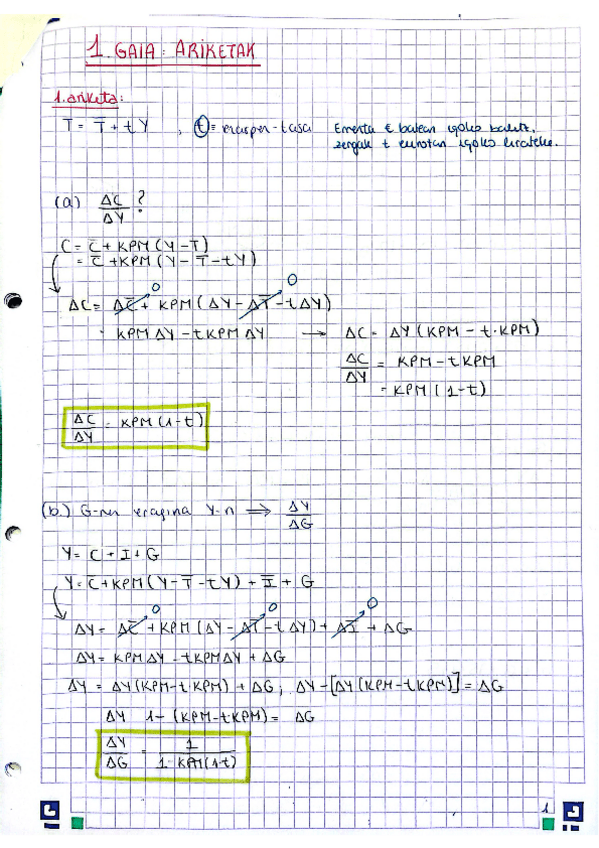 1. GAIA: ARIKETAK
1. ariketa:
T = T̄ + tY , t = erazpen-tasa Errenta € batean igoko balitz,
zergak t eurotan igoko lirateke.
(a) ΔC/ΔY ?
C = C̄ + KPM (Y - T)
= C̄ + KPM (Y - T̄ - tY)
ΔC = ΔC̄ + KPM (ΔY - ΔT̄ - tΔY)
0 0
= KPM ΔY - t KPM ΔY → ΔC = ΔY (KPM - t·KPM)
ΔC/ΔY = KPM - t KPM
= KPM (1-t)
ΔC/ΔY = KPM (1-t)
(b.) G-ren eragina Y-n ⇒ ΔY/ΔG
Y = C + I + G
Y = C̄ + KPM (Y - T̄ - tY) + Ī + G
0 0 0
ΔY = ΔC̄ + KPM (ΔY - ΔT̄ - tΔY) + ΔĪ + ΔG
ΔY = KPM ΔY - t KPM ΔY + ΔG
ΔY = ΔY (KPM - t KPM) + ΔG ; ΔY - [ΔY (KPM - t KPM)] = ΔG
ΔY 1 - (KPM - t KPM) = ΔG
ΔY/ΔG = 1/1 - KPM (1-t)
1